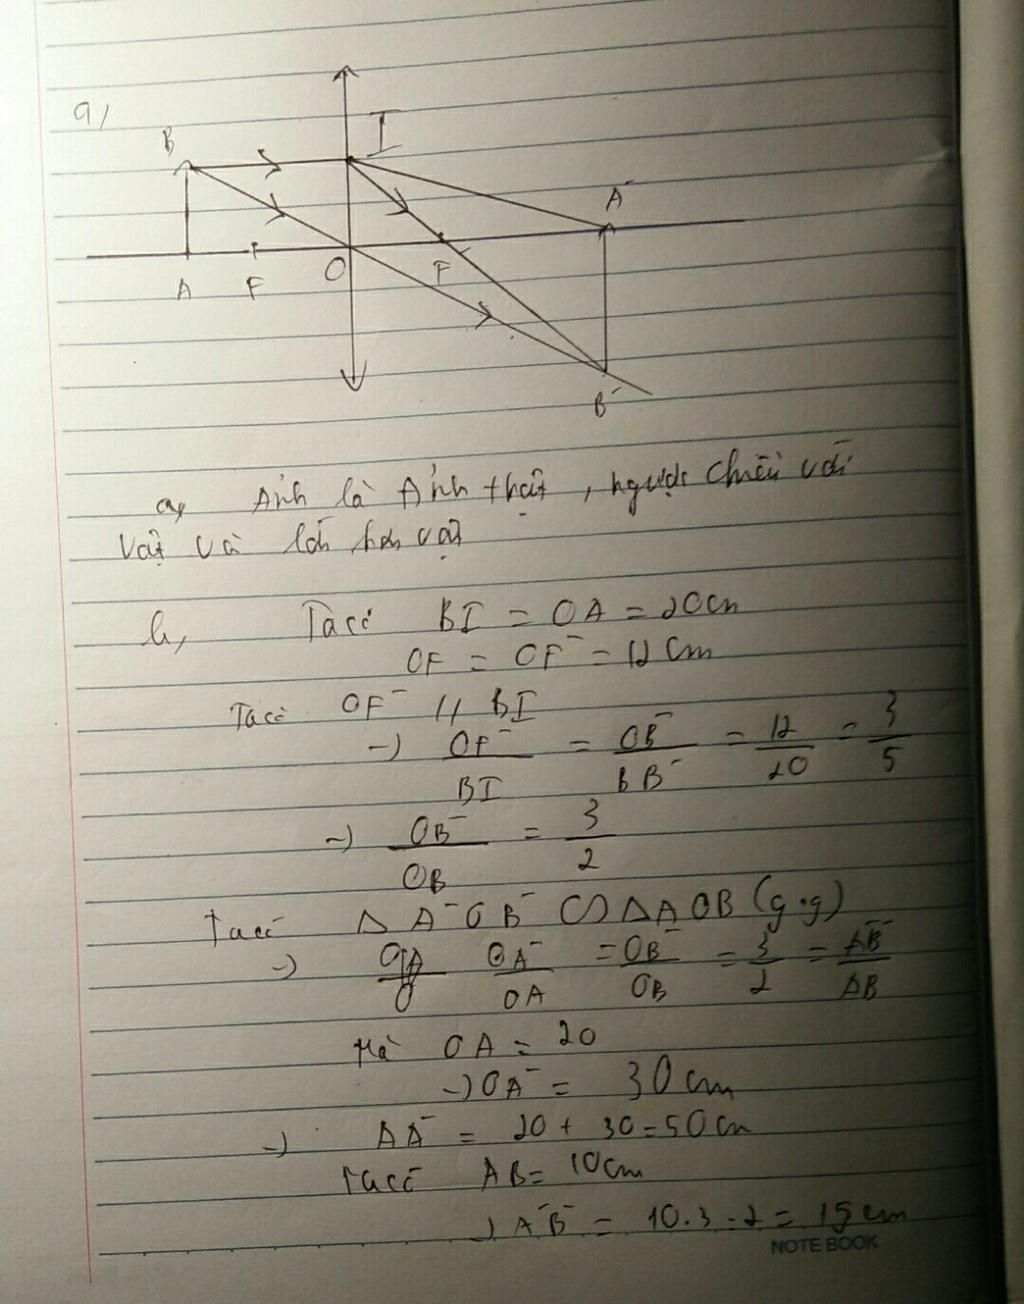 a/
B
I
A'
A
F
O
F
B'
a, Ảnh là Ảnh thật, ngược chiều với
vật và lớn hơn vật
b, Ta có BI = OA = 20cm
OF = OF' = 12cm
Ta có OF' // BI
→ OF'/BI = OB'/BB' = 12/20 = 3/5
→ OB'/OB = 3/2
Ta có Δ A'OB' ∽ Δ AOB (g.g)
→ OA'/OA = OB'/OB = 3/2 = A'B'/AB
Mà OA = 20
→ OA' = 30cm
→ AA' = 20 + 30 = 50cm
Ta có AB = 10cm
→ A'B' = 10.3:2 = 15cm
NOTE BOOK